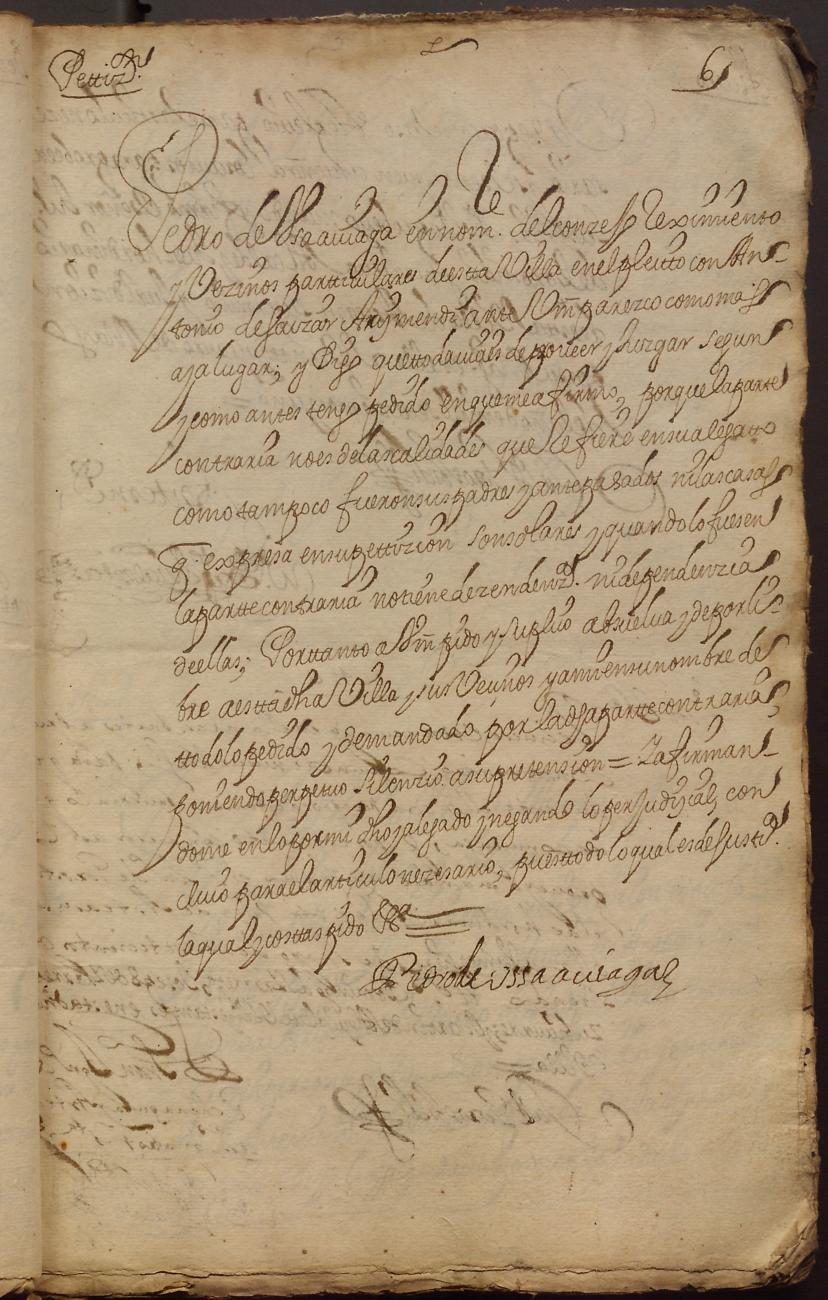 Pettizon
6
Pedro de Ussaauiaga en nom. del conzejo Reximiento
y Vezinos particulares de esta Villa en el pleitto con An-
tonio de Saizar Arizmendi ante Vm parezco como ma-s
aya lugar; y Digo que ttoda uia es de proueer y Juzgar segun
y como antes tengo pedido en que me afirmo, porque la parte
contraria no es de las calidades que refiere en su alegatto
como tampoco fueron sus padres y antepasados ni las casas
q. expresa en su pettizion son solares y quando lo fuesen
la partte contraria no tiene dezendenza. ni dependenzia
de ellas; Por tanto a Vm pido y suplico absuelua y de por li-
bre a estta dha Villa y sus Vecinos y a mi en su nombre de
ttodo lo pedido y demandado por la dha partte contraria
poniendo perpetuo silenzio a su pretension = Y afirman-
dome en lo por mi dho y alegado y negando lo perjudizial, con
cluio para el articulo nezesario, pues ttodo lo qual es de Justta.
la qual y costtas pido &a
Pedro de ussaauiaga